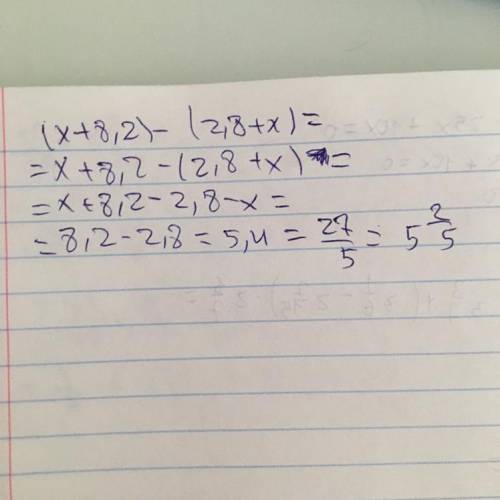 (x+8,2)-(2,8+x)=
=x+8,2-(2,8+x)=
=x+8,2-2,8-x=
=8,2-2,8=5,4=27/5=5 2/5